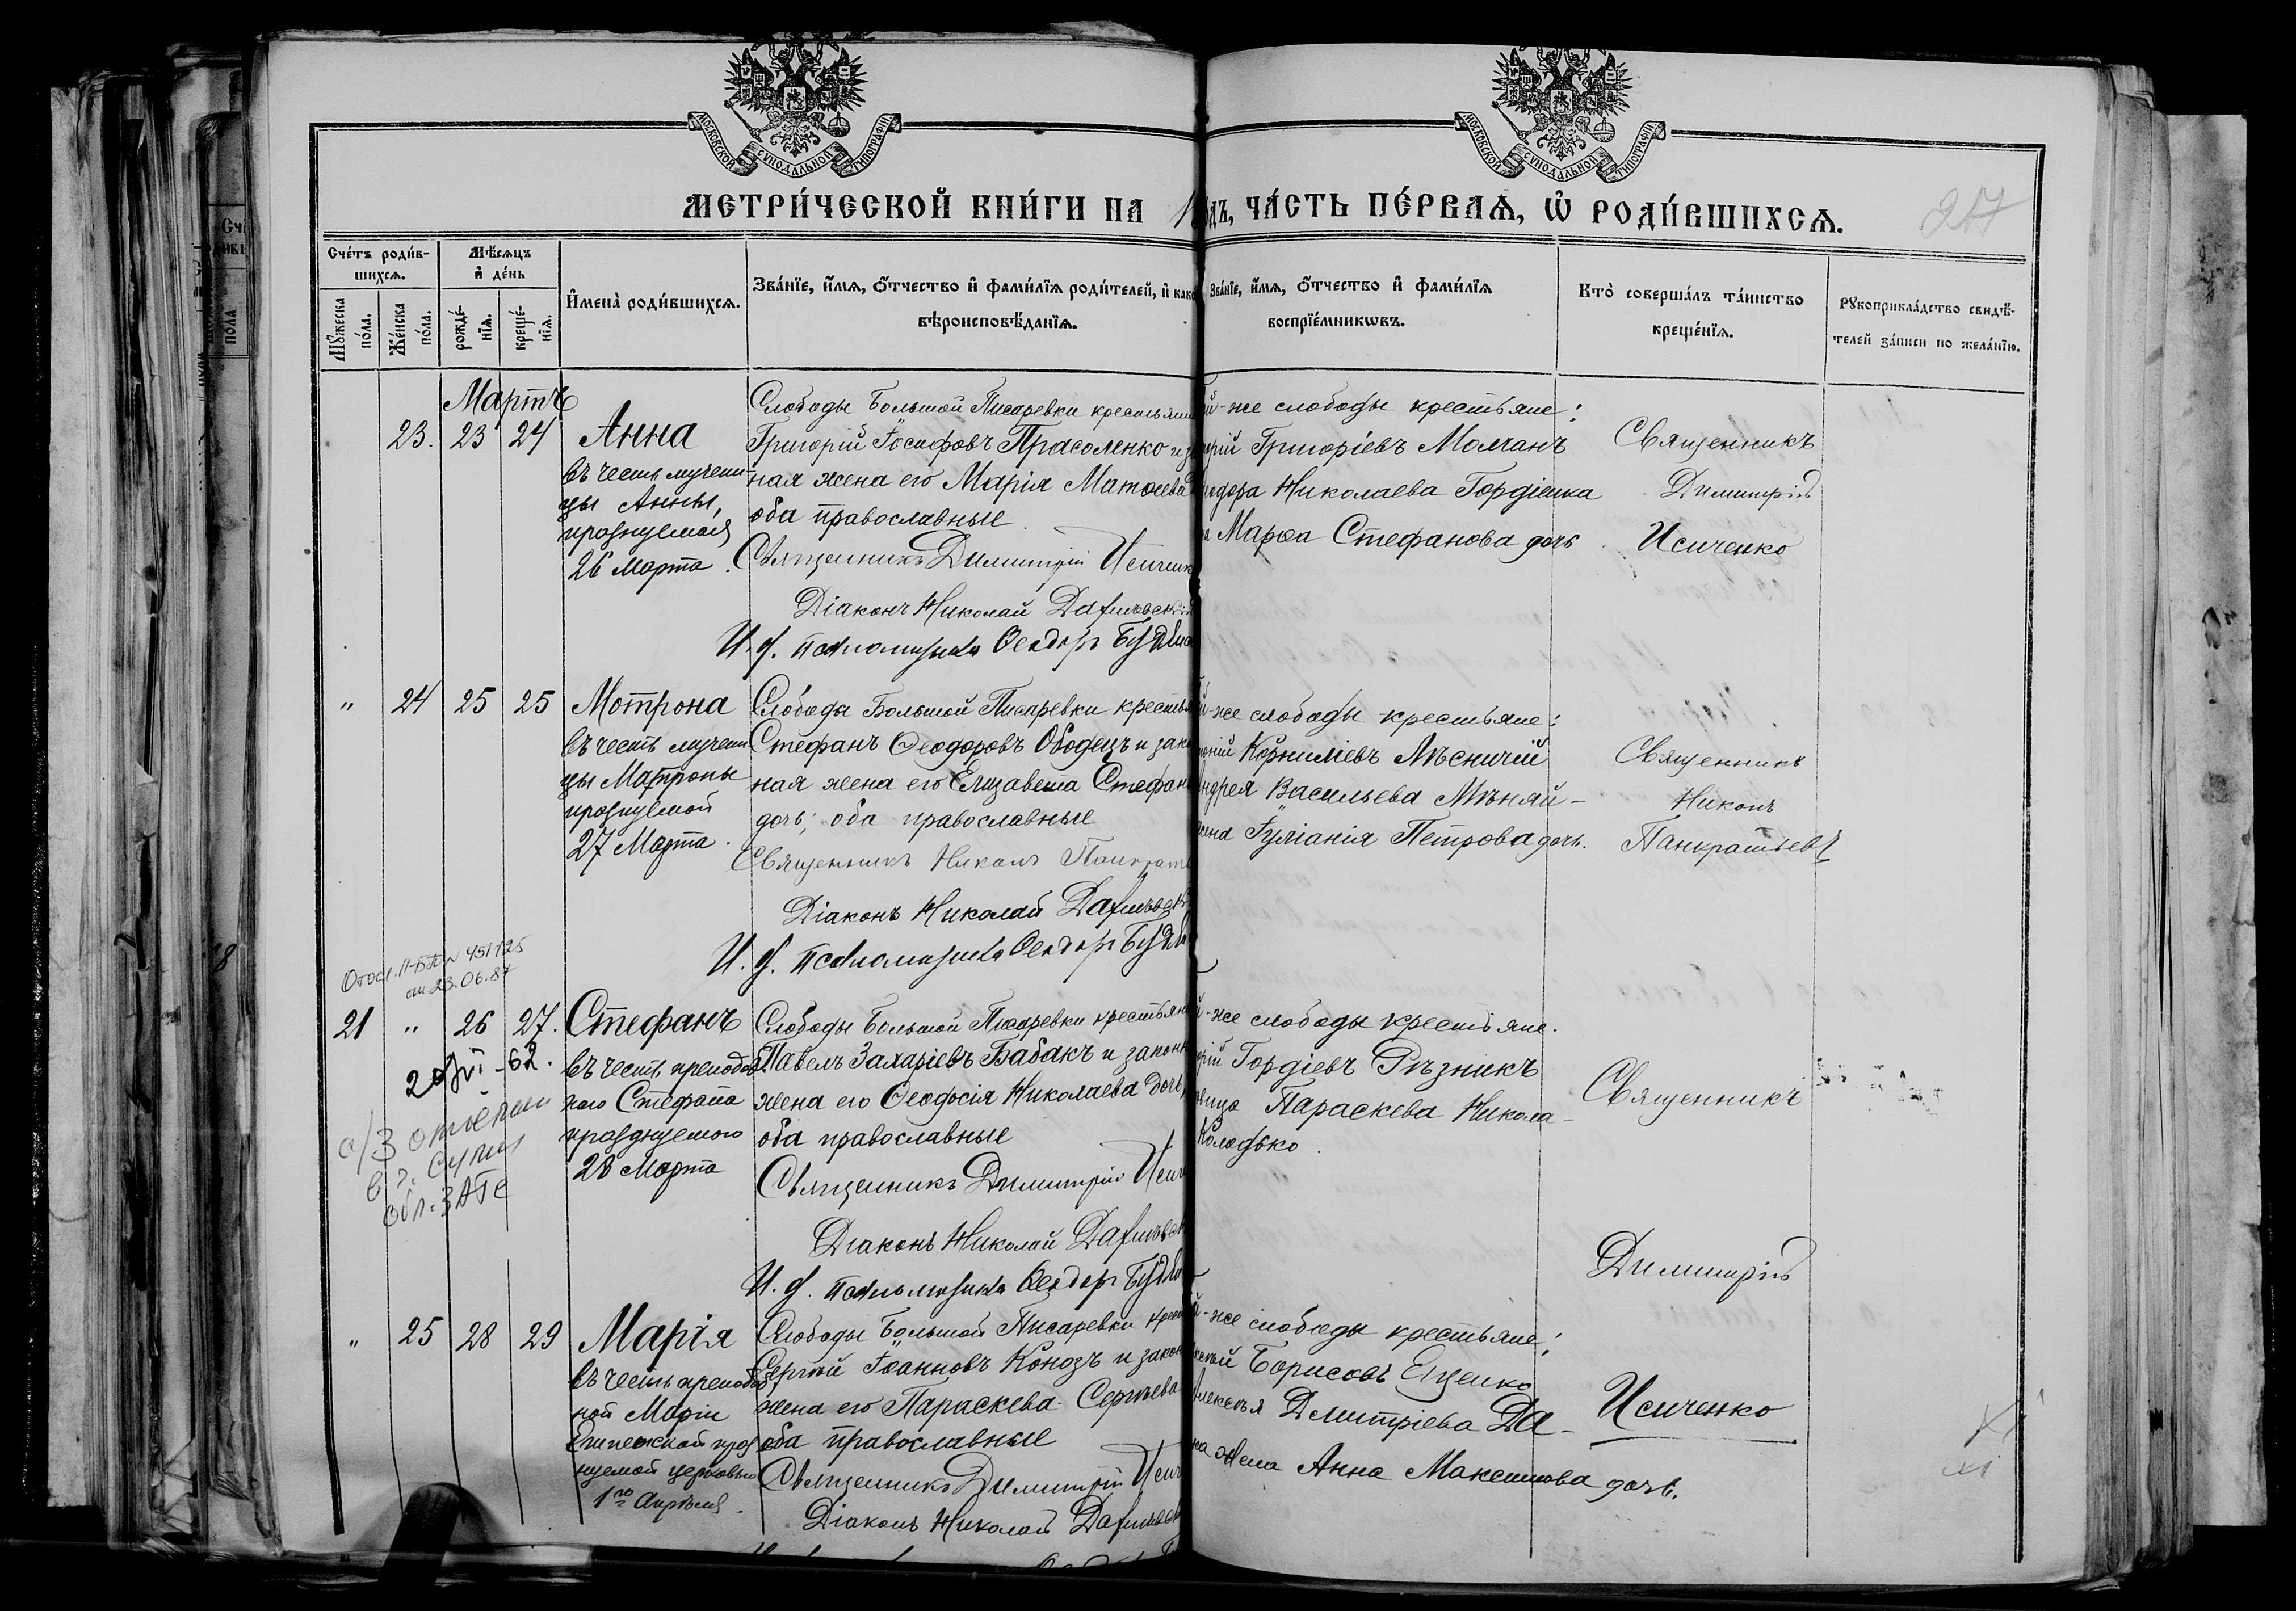 МОСКОВСКОЙ СѴНОДАЛЬНОЙ ТИПОГРАФІИ
МОСКОВСКОЙ СѴНОДАЛЬНОЙ ТИПОГРАФІИ
МЕТРИ́ЧЕСКОЙ КНИ́ГИ НА 1
дъ, ЧА́СТЬ ПЕ́РВАѦ, Ѿ РОДИ́ВШИХСѦ.
217
Сче́тъ роди́в-
шихсѧ.
Мѣ́сѧцъ
и҆ де́нь
Мꙋ́жеска
по́ла.
Же́нска
по́ла.
рожде́-
нїѧ.
креще́-
нїѧ.
И҆мена̀ роди́вшихсѧ.
Зва́нїе, и҆́мѧ, ѻ҆́тчество и҆ фами́лїѧ роди́телей, и҆ како
вѣроисповѣ́данїѧ.
Зва́нїе, и҆́мѧ, ѻ҆́тчество и҆ фами́лїѧ
воспрїе́мникѡвъ.
Кто̀ соверша́лъ та́инство
креще́нїѧ.
Рꙋкоприкла́дство свидѣ́-
телей за́писи по жела́нїю.
Мартъ
23. 23 24 Анна
въ честь мучени-
цы Анны,
празнуемой
26 Марта.
Слободы Большой Писаревки крестьянин
Григорій Іосифовъ Прасоленко и за
ная жена его Марія Матѳева
оба православные
Священникъ Димитрій Исиченк
Діаконъ Николай
И. д. псаломщика Ѳеодоръ
й-же слободы крестьяне:
рій Григоріевъ Молчанъ
одора Николаева Гордіенка
а Марѳа Стефанова дочь
Священникъ
Димитрій
Исиченко
" 24 25 25 Мотрона
въ честь мучени
цы Матроны
празнуемой
27 Марта.
Слободы Большой Писаревки кресть
Стефанъ Ѳеодоровъ Ободецъ и зако
ная жена его Елизавета Стефан
дочь; оба православные
Священникъ Никонъ Панкрать
Діаконъ Николай
И. д. псаломщика Ѳеодоръ
й-же слободы крестьяне:
оній Корниліевъ Лѣсничій
Андрея Васильева Мѣняй-
жена Іуліанія Петрова дочь.
Священникъ
Никонъ
Панкратьевъ
Отосл. II-БП № 451725
от 23.06.87
21 " 26 27. Стефанъ
въ честь преподоб
наго Стефана
празднуемого
28 Марта
Слободы Большой Писаревки крестьяни
Павелъ Захаріевъ Бабакъ и законн
жена его Ѳеодосія Николаева дочь,
оба православные
Священникъ Димитрій Исич
Діаконъ Николай
И. д. псаломщика Ѳеодоръ
й-же слободы крестьяне.
рій Гордіевъ Рѣзникъ
вица Параскева Никола-
Колодько.
Священникъ
Димитрій
Исиченко
20/VI-62.
а/З отметки
в г. Сумы
обл. ЗАГС
" 25 28 29 Марія
въ честь преподоб
ной Маріи
Египетской праз
нуемой церковью
1го Апрѣля.
Слободы Большой Писаревки крест
Сергѣй Іоанновъ Конозъ и закон
жена его Параскева Сергѣева
оба православные
Священникъ Димитрій Исич
Діаконъ Николай
й-же слободы крестьяне:
ксѣй Борисовъ Ещенко
Алексѣя Дмитріева Да-
ка жена Анна Максимова дочь.